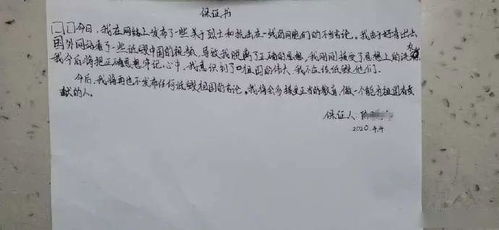 保证书
今日，我在网络上发布了一些关于烈士和抗击在一线的同胞们的不当言论。我由于好奇出去
国外网站看了一些诋毁中国的视频，导致我脱离了正确的思想，我刚刚接受了思想上的洗
我今后将把正确思想牢记心中，我意识到了中祖国的伟大，我不在低诋毁他们。
今后，我将再也不发布任何诋毁祖国的言论。我将会多接受正当的教育，做一个能为祖国有贡
献的人。
保证人：陈
2020.4.4